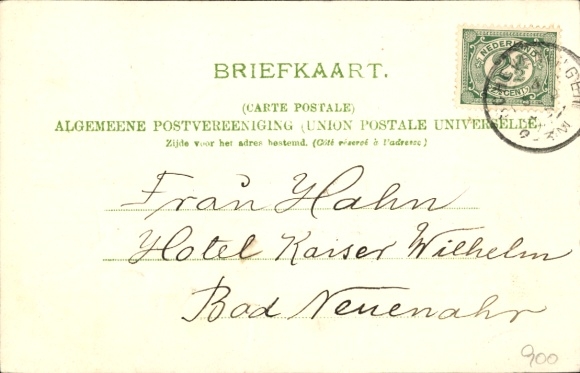 NEDERLAND
2½
CENT
BRIEFKAART.
(CARTE POSTALE)
ALGEMEENE POSTVEREENIGING (UNION POSTALE UNIVERSELLE)
Zijde voor het adres bestemd. (Côté réservé à l'adresse)
Frau Hahn
Hotel Kaiser Wilhelm
Bad Neuenahr
900